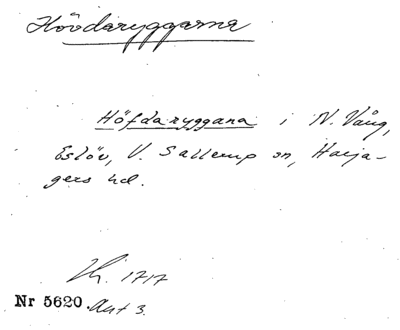 Hövdaryggarna
Höfdaryggana i N. Vång,
Eslöv, V. Sallerup sn, Harja-
gers hd.
Lk. 1717
Nr 5620. Akt 3.